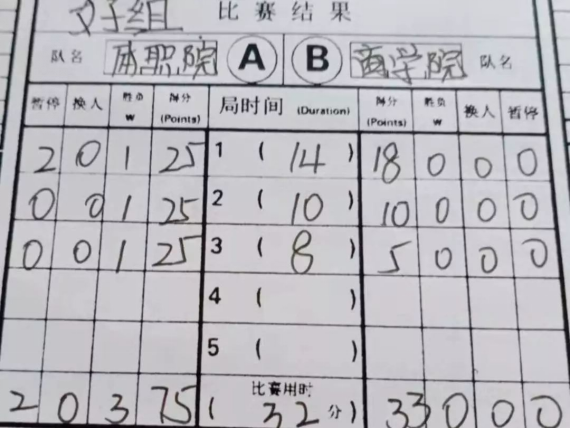 女子组 比赛结果
队名 体职院 A B 商学院 队名
暂停 换人 胜负 W 得分 (Points) 局时间 (Duration) 得分 (Points) 胜负 W 换人 暂停
2 0 1 25 1 ( 14 ) 18 0 0 0
0 0 1 25 2 ( 10 ) 10 0 0 0
0 0 1 25 3 ( 8 ) 5 0 0 0
4 ( )
5 ( )
比赛用时
2 0 3 75 ( 32 分 ) 33 0 0 0